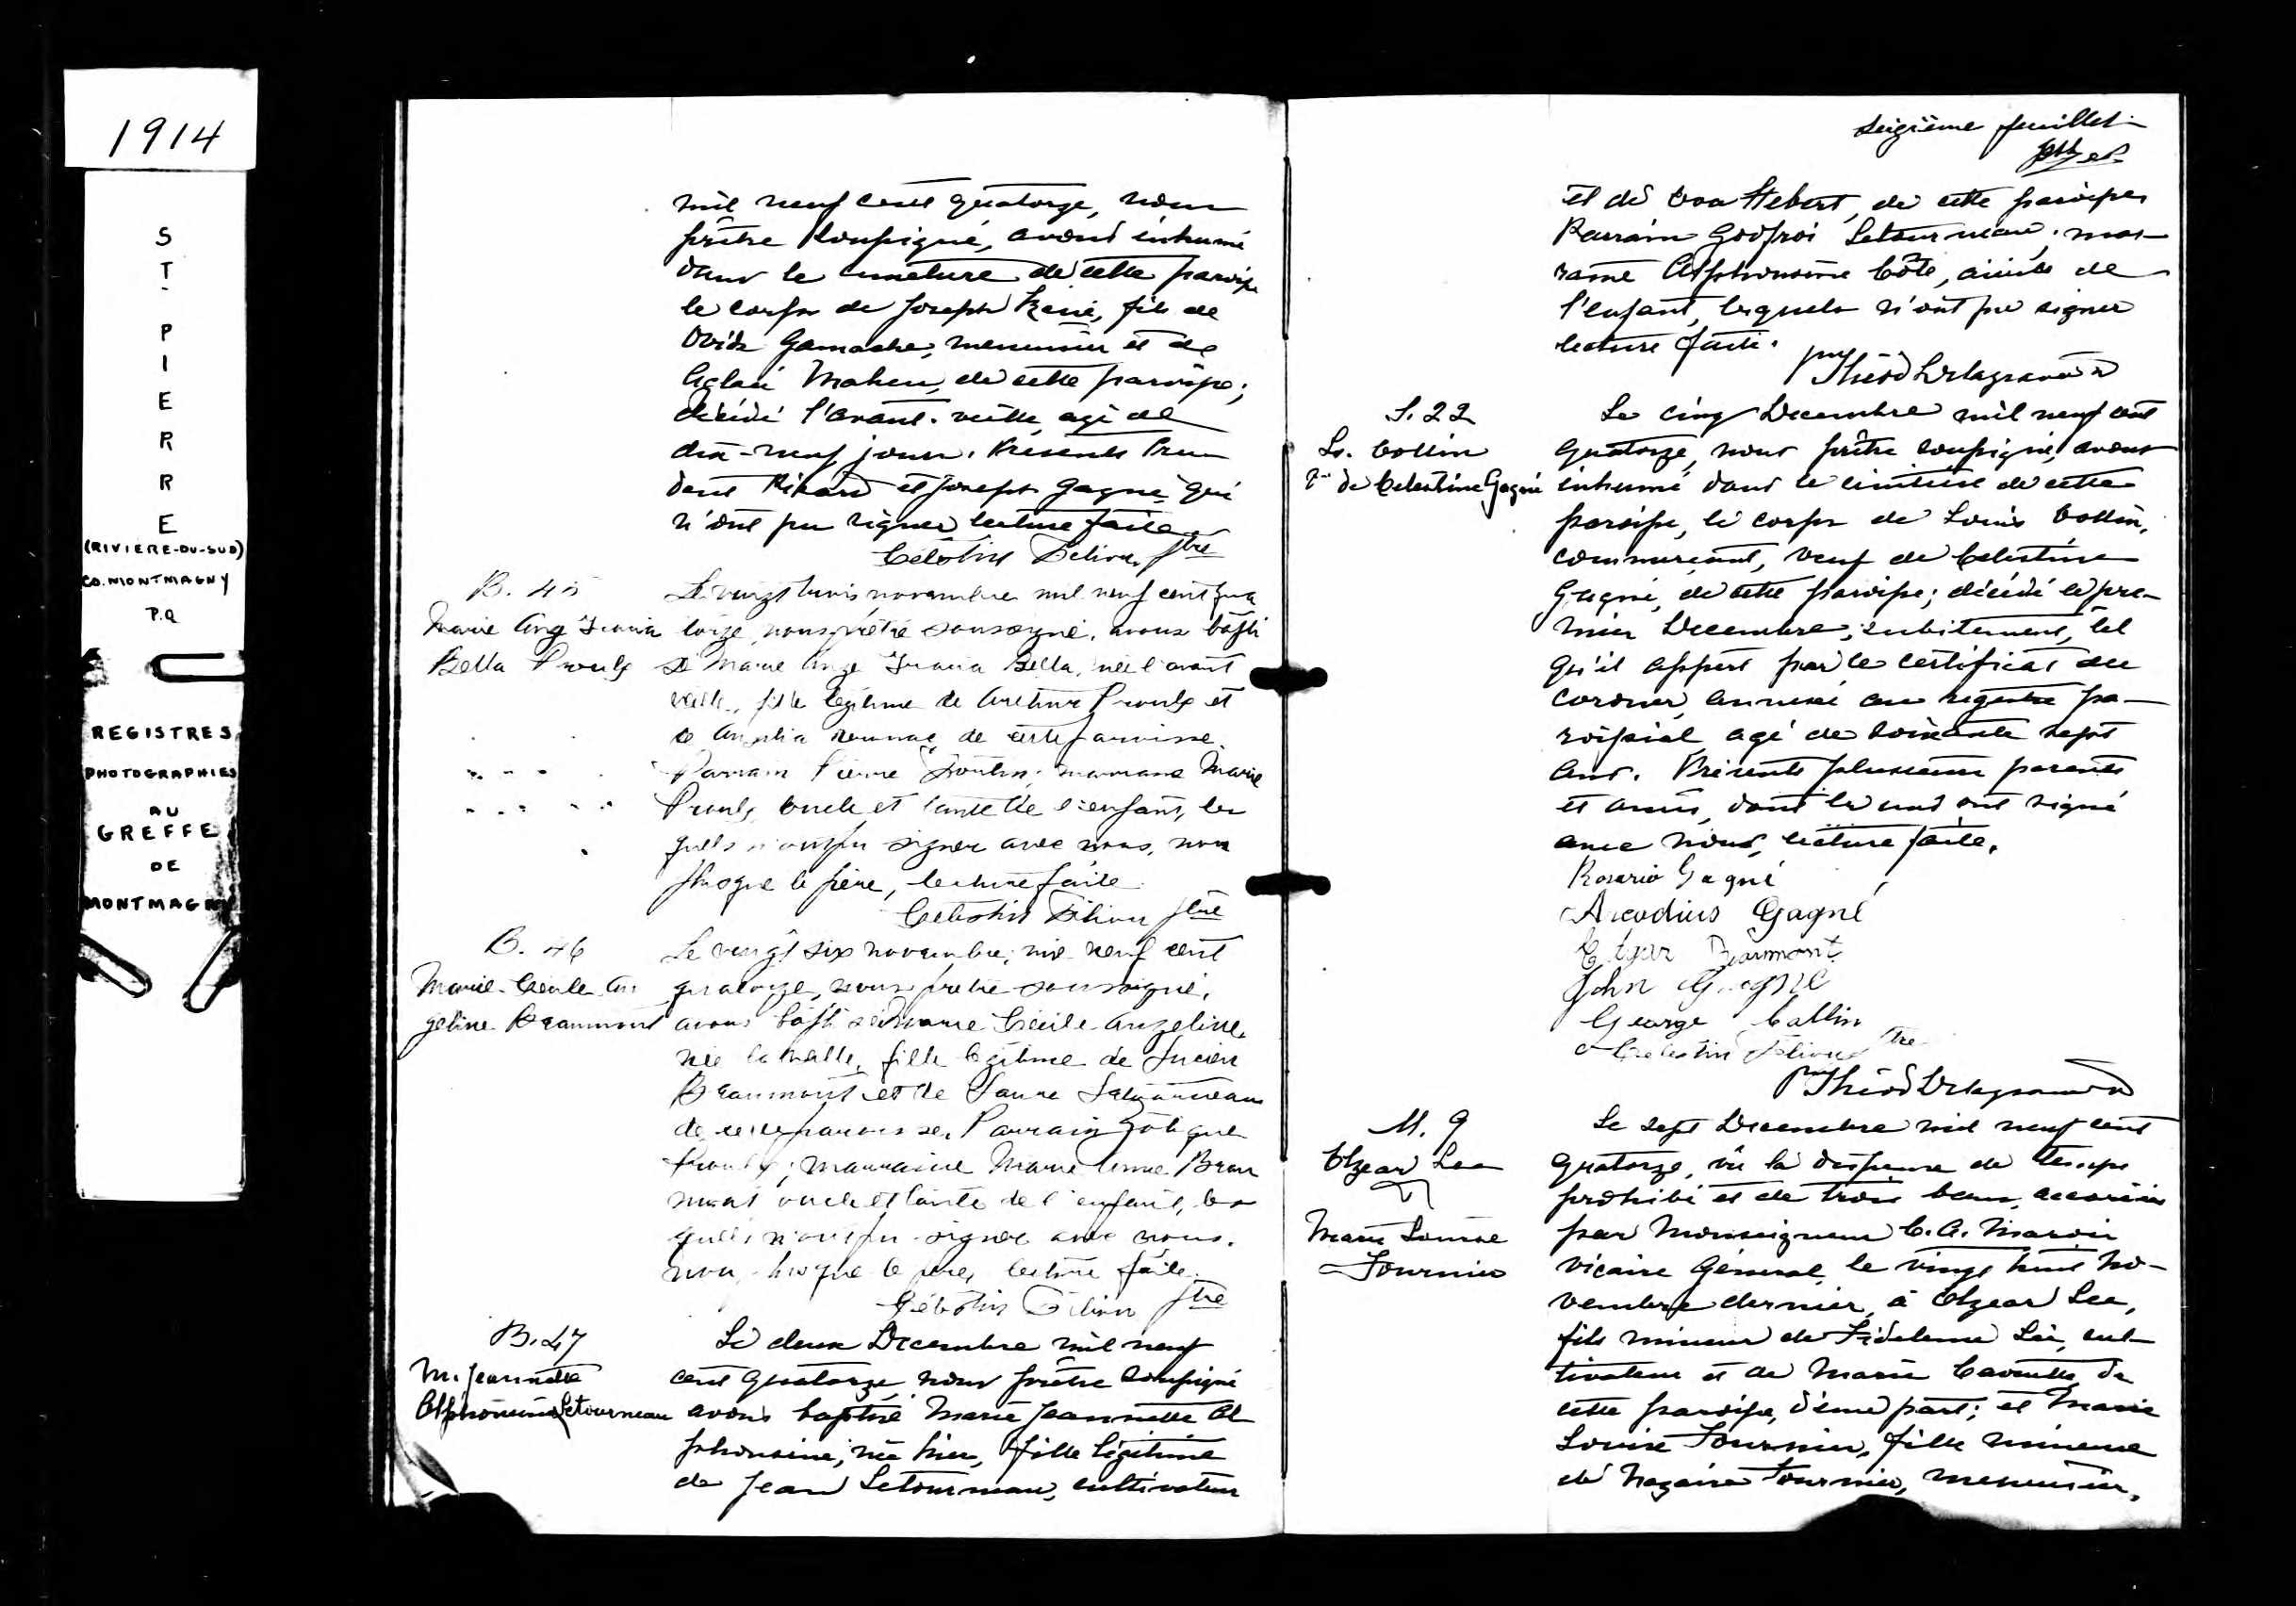 1914
ST-PIERRE
(RIVIERE-DU-SUD)
CO. MONTMAGNY
P.Q
REGISTRES
PHOTOGRAPHIES
AU
GREFFE
DE
MONTMAGNY
mil neuf cent quatorze, nous
prêtre soussigné, avons inhumé
dans le cimetière de cette paroisse
le corps de Joseph René, fils de
Ovide Gamache, menuisier et de
Aglaé Maheu, de cette paroisse;
décédé l'avant-veille, agé de
dix-neuf jours. Présents Pru
dent Picard et Joseph Gagné qui
n'ont pu signer lecture faite
Célestin Ptre
B. 45
Marie Ange
Bella Proulx
Le vingt trois novembre mil neuf cent qua
torze, nous prêtre soussigné, avons bapti
sé Marie Ange Bella, née l'avant
veille, fille légitime de Arthur Proulx et
de de cette paroisse.
Parrain Pierre marraine Marie
Proulx, oncle et tante de l'enfant, les
quels n'ont pu signer avec nous, non
plus que le père, lecture faite
Célestin Ptre
B. 46
Marie-Cécile An
géline Beaumont
Le vingt six novembre, mil neuf cent
quatorze, nous prêtre soussigné,
avons baptisé Marie Cécile Angeline
née la veille, fille légitime de Lucien
Beaumont et de Létourneau
de cette paroisse. Parrain
Proulx; marraine Marie Anne Beau
mont oncle et tante de l'enfant, les
quels n'ont pu signer avec nous.
non plus que le père, lecture faite.
Célestin Ptre
B. 47
M. Jeannette
Alphonsine Letourneau
Le deux Decembre mil neuf
cent quatorze nous prêtre soussigné
avons baptisé Marie Jeannette Al
phonsine, née hier, fille légitime
de Jean Letourneau, cultivateur
seizième feuillet
et de Eva Hebert, de cette paroisse
Parrain Godfroi Letourneau; mar-
raine Alphonsine Côté, aïeule de
l'enfant, lesquels n'ont pu signer
lecture faite.
S. 22
Ls. Collin
Vf de Celestine Gagné
Le cinq Decembre mil neuf cent
quatorze, nous prêtre soussigné, avons
inhumé dans le cimitière de cette
paroisse, le corps de Louis Collin,
commerçant, veuf de Celestine
Gagné, de cette paroisse; décédé le pre-
mier Decembre, subitement, tel
qu'il appert par le certificat du
coroner, annexé au registre pa-
roissial agé de soixante sept
ans. Présents plusieurs parents
et amis, dont les uns ont signé
avec nous, lecture faite.
Rosario Gagné
Arcadius Gagné
Edgar Beaumont
John Gagné
George Collin
Celestin Ptre
M. 9
Elzear Lee
&
Marie Louise
Fournier
Le sept Decembre mil neuf cent
quatorze, vû la dispense de temps
prohibé et de trois bans, accordée
par Monseigneur C. A. Marois
vicaire Général, le vingt huit No-
vembre dernier, à Elzear Lee,
fils mineur de Lee, cul-
tivateur et de Marie Caouette de
cette paroisse, d'une part; et Marie
Louise Fournier, fille mineure
de Nazaire Fournier, menuisier,